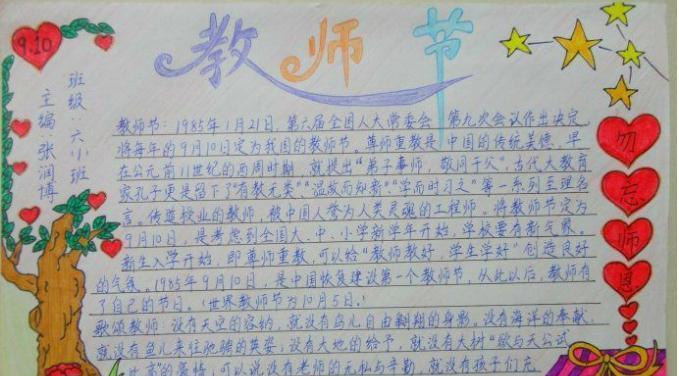 9.10
教师节
班级:六小班
主编:张润博
教师节:1985年1月21日,第六届全国人大常委会 第九次会议作出决定,
将每年的9月10日定为我国的教师节。尊师重教是中国的传统美德,早
在公元前11世纪的西周时期,就提出“弟子事师,敬同于父”。古代大教育
家孔子更是留下了“有教无类”“温故而知新”“学而时习之”等一系列至理名
言。传道授业的教师,被中国人誉为人类灵魂的工程师。将教师节定为
9月10日,是考虑到全国大、中、小学新学年开始,学校要有新气象。
新生入学开始,即尊师重教,可以给“教师教好,学生学好”创造良好
的气氛。1985年9月10日,是中国恢复建设第一个教师节,从此以后,教师有
了自己的节日。(世界教师节为10月5日。)
歌颂教师:没有天空的容纳,就没有鸟儿自由翱翔的身影。没有海洋的奉献,
就没有鱼儿来往驰骋的英姿;没有大地的给予,就没有大树“欲与天公试
比高”的豪情;可以说没有老师的无私与辛勤,就没有孩子们充
勿忘师恩